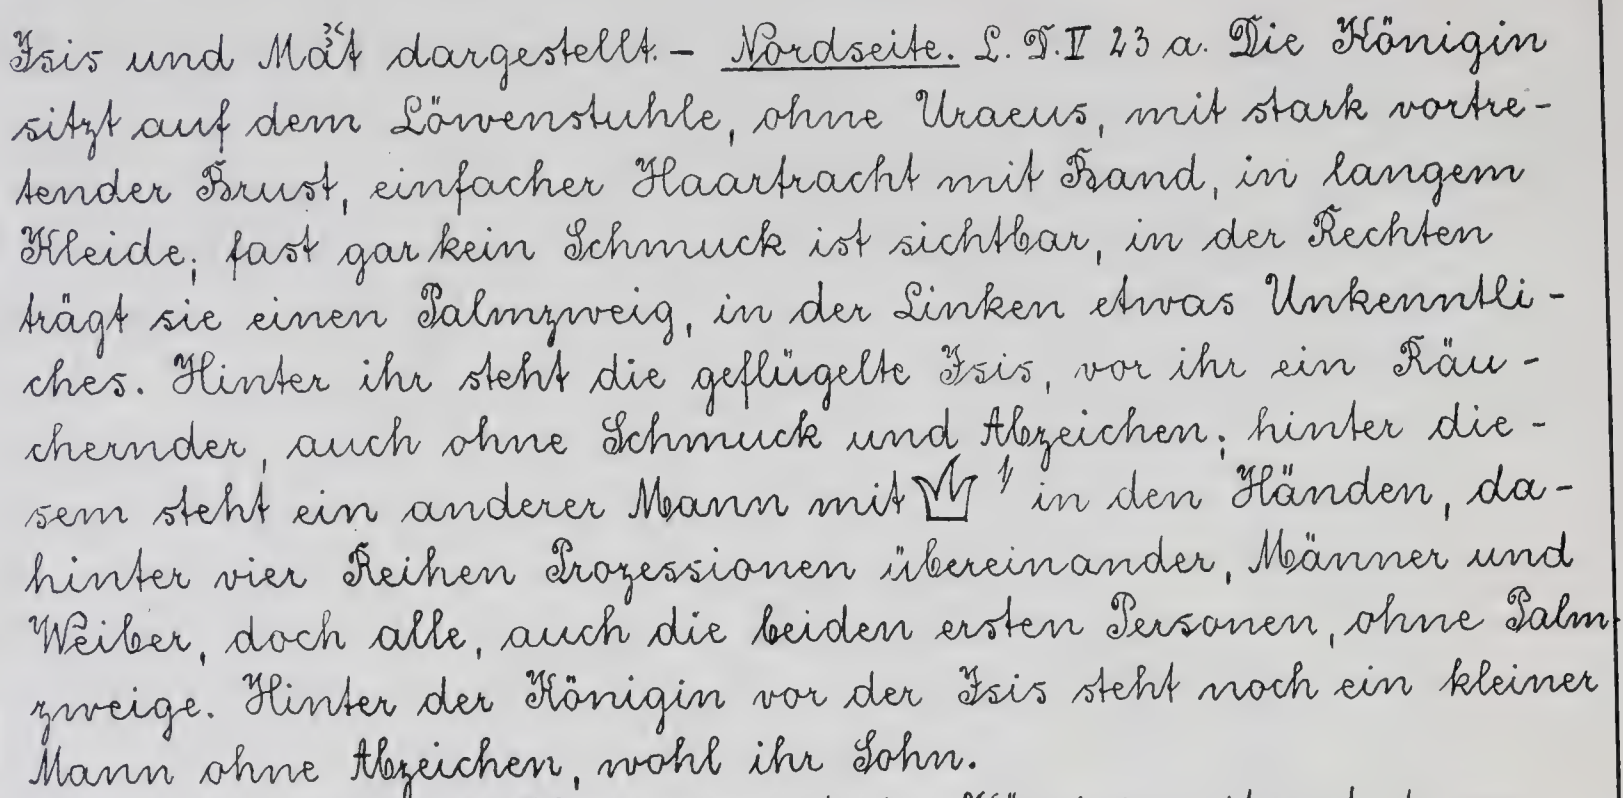 Isis und Maʾat dargestellt. – Nordseite. L. D. V 23 a. Die Königin
sitzt auf dem Löwenstuhle, ohne Uraeus, mit stark vortre-
tender Brust, einfacher Haartracht mit Band, in langem
Kleide; fast gar kein Schmuck ist sichtbar, in der Rechten
trägt sie einen Palmzweig, in der Linken etwas Unkenntli-
ches. Hinter ihr steht die geflügelte Isis, vor ihr ein Räu-
chernder, auch ohne Schmuck und Abzeichen; hinter die-
sem steht ein anderer Mann mit in den Händen, da-
hinter vier Reihen Prozessionen übereinander, Männer und
Weiber, doch alle, auch die beiden ersten Personen, ohne Palm-
zweige. Hinter der Königin vor der Isis steht noch ein kleiner
Mann ohne Abzeichen, wohl ihr Sohn.